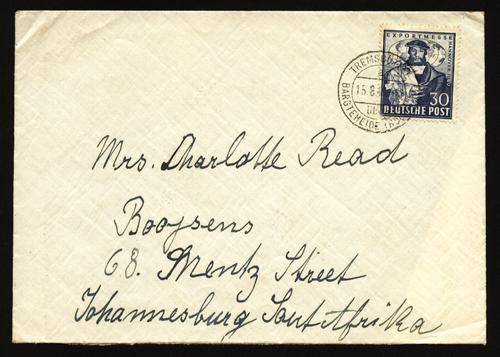 EXPORTMESSE HANNOVER 1949
30
DEUTSCHE POST
15.8.
BARGTEHEIDE
Mrs. Charlotte Read
Booysens
68. Mentz Street
Johannesburg Sout Afrika